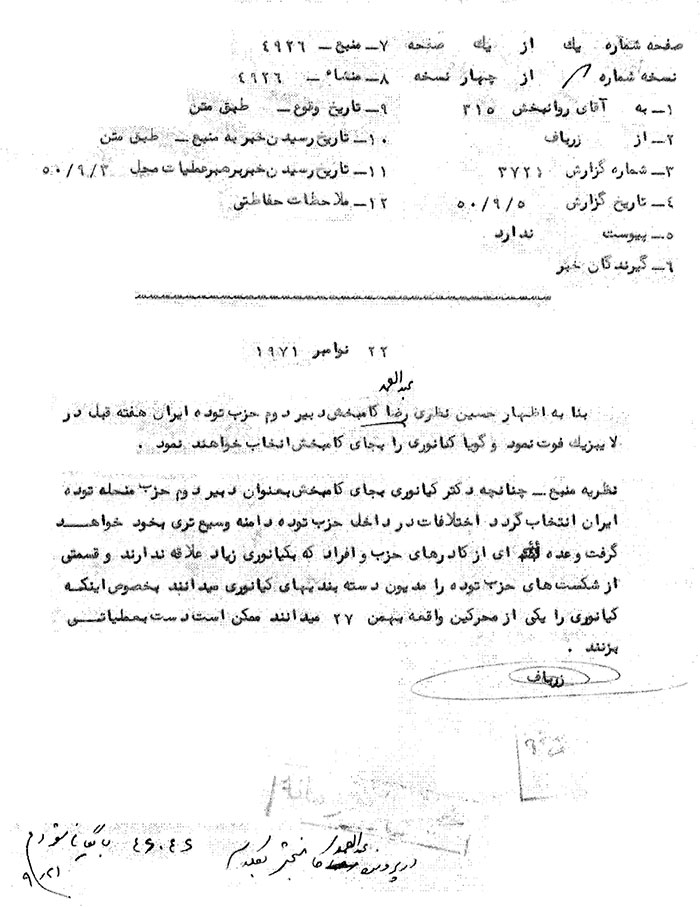 صفحه شماره يك از يك صفحه ۷ــ منبع ــ ۴۹۲۶
نسخه شماره از چهار نسخه ۸ــ منشاء ــ ۴۹۲۶
۱ــ به آقای روانبخش ۳۱۵ ۹ــ تاريخ وقوع ــ طبق متن
۲ــ از زرباف ۱۰ــ تاريخ رسيدن خبر به منبع ــ طبق متن
۳ــ شماره گزارش ۳۷۲۱ ۱۱ــ تاريخ رسيدن خبر برهبر عمليات محل ۵۰/۹/۳
۴ــ تاريخ گزارش ۵۰/۹/۵ ۱۲ــ ملاحظات حفاظتی
۵ــ پيوست ندارد
۶ــ گيرندگان خبر
۲۲ نوامبر ۱۹۷۱
عبدالصمد
بنا به اظهار حسين نظری رضا کامبخش دبير دوم حزب توده ايران هفته قبل در
لايپزيك فوت نمود و گويا کيانوری را بجای کامبخش انتخاب خواهند نمود .
نظريه منبع ــ چنانچه دکتر کيانوری بجای کامبخش بعنوان دبير دوم حزب منحله توده
ايران انتخاب گردد اختلافات در داخل حزب توده دامنه وسيع تری بخود خواهد
گرفت و عده ای از کادرهای حزب و افراد که بکيانوری زياد علاقه ندارند و قسمتی
از شکست های حزب توده را مديون دسته بنديهای کيانوری ميدانند بخصوص اينکه
کيانوری را يکی از محرکين واقعه بهمن ۲۷ ميدانند ممکن است دست بعملياتی
بزنند .
زرباف
در پرونده عبدالصمد کامبخش
۴۶۰۴۶
۹/۲۱